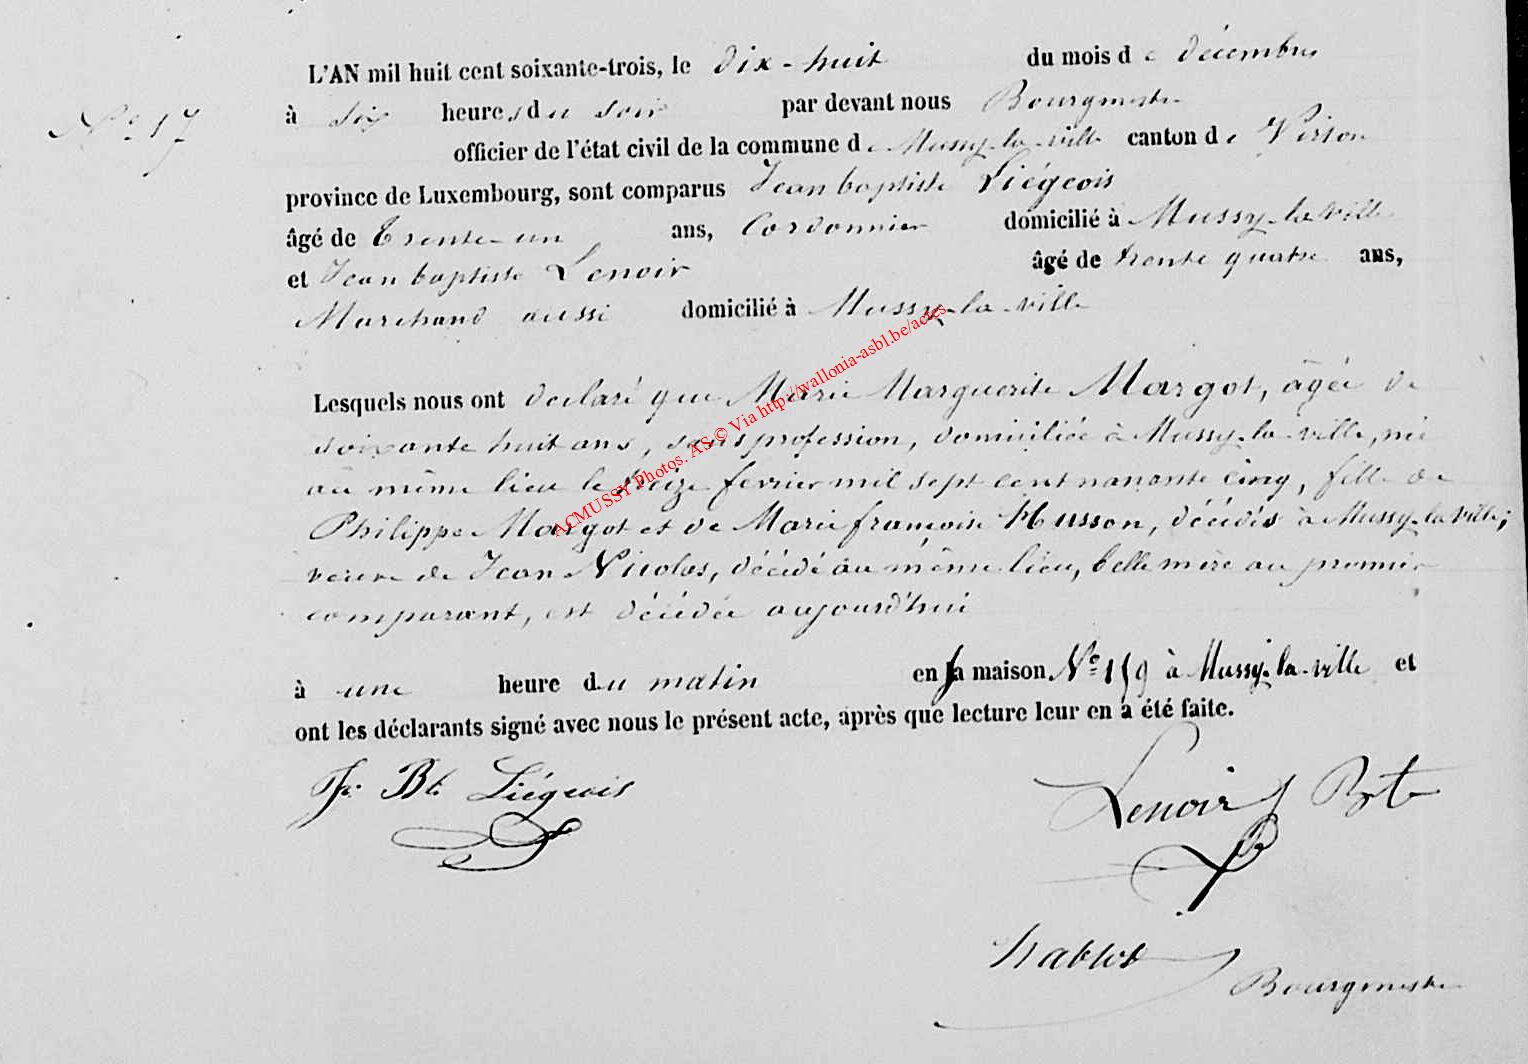 L'AN mil huit cent soixante-trois, le dix-huit du mois de décembre
N° 17
à six heures du soir par devant nous Bourgmestre
officier de l'état civil de la commune de Mussy-la-ville canton de Virton
province de Luxembourg, sont comparus Jean baptiste Liégeois
âgé de Trente-un ans, Cordonnier domicilié à Mussy-la-ville
et Jean baptiste Lenoir âgé de trente quatre ans,
Marchand aussi domicilié à Mussy-la-ville
Lesquels nous ont declaré que Marie Marguerite Margot, âgée de
soixante huit ans, sans profession, domiciliée à Mussy-la-ville, née
au même lieu le seize fevrier mil sept cent nonante cinq, fille de
Philippe Margot et de Marie françoise Husson, décédés à Mussy-la-Ville;
veuve de Jean Nicolas, décédé au même lieu, belle mère au premier
comparant, est décédée aujourd'hui
à une heure du matin en sa maison N° 159 à Mussy-la-ville et
ont les déclarants signé avec nous le présent acte, après que lecture leur en a été faite.
Jn Bte Liégeois
Lenoir J Bte
Bourgmestre
ACMUSSY Photos. AS © Via http://wallonia-asbl.be/actes